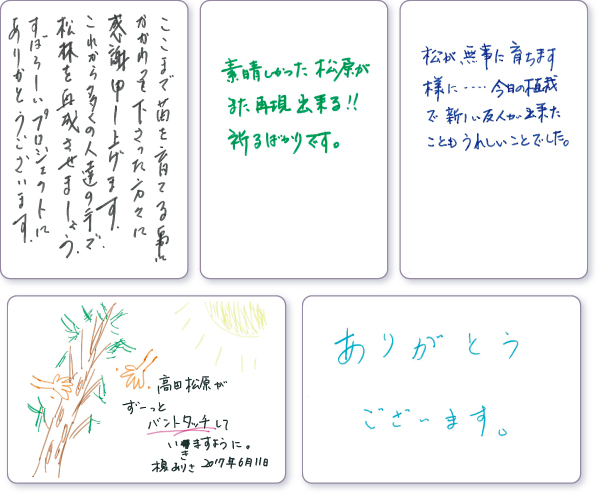 ここまで苗を育てる事に
かかわって下さった方々に
感謝申し上げます。
これから多くの人達の手で
松林を再成させましょう。
すばらしいプロジェクトに
ありがとうございます。
素晴しかった松原が
また再現出来る!!
祈るばかりです。
松が、無事に育ちます
様に‥‥今日の植栽
で新しい友人が出来た
こともうれしいことでした。
高田松原が
ずーっと
バントタッチして
いきますように。
2017年6月11日
ありがとう
ございます。